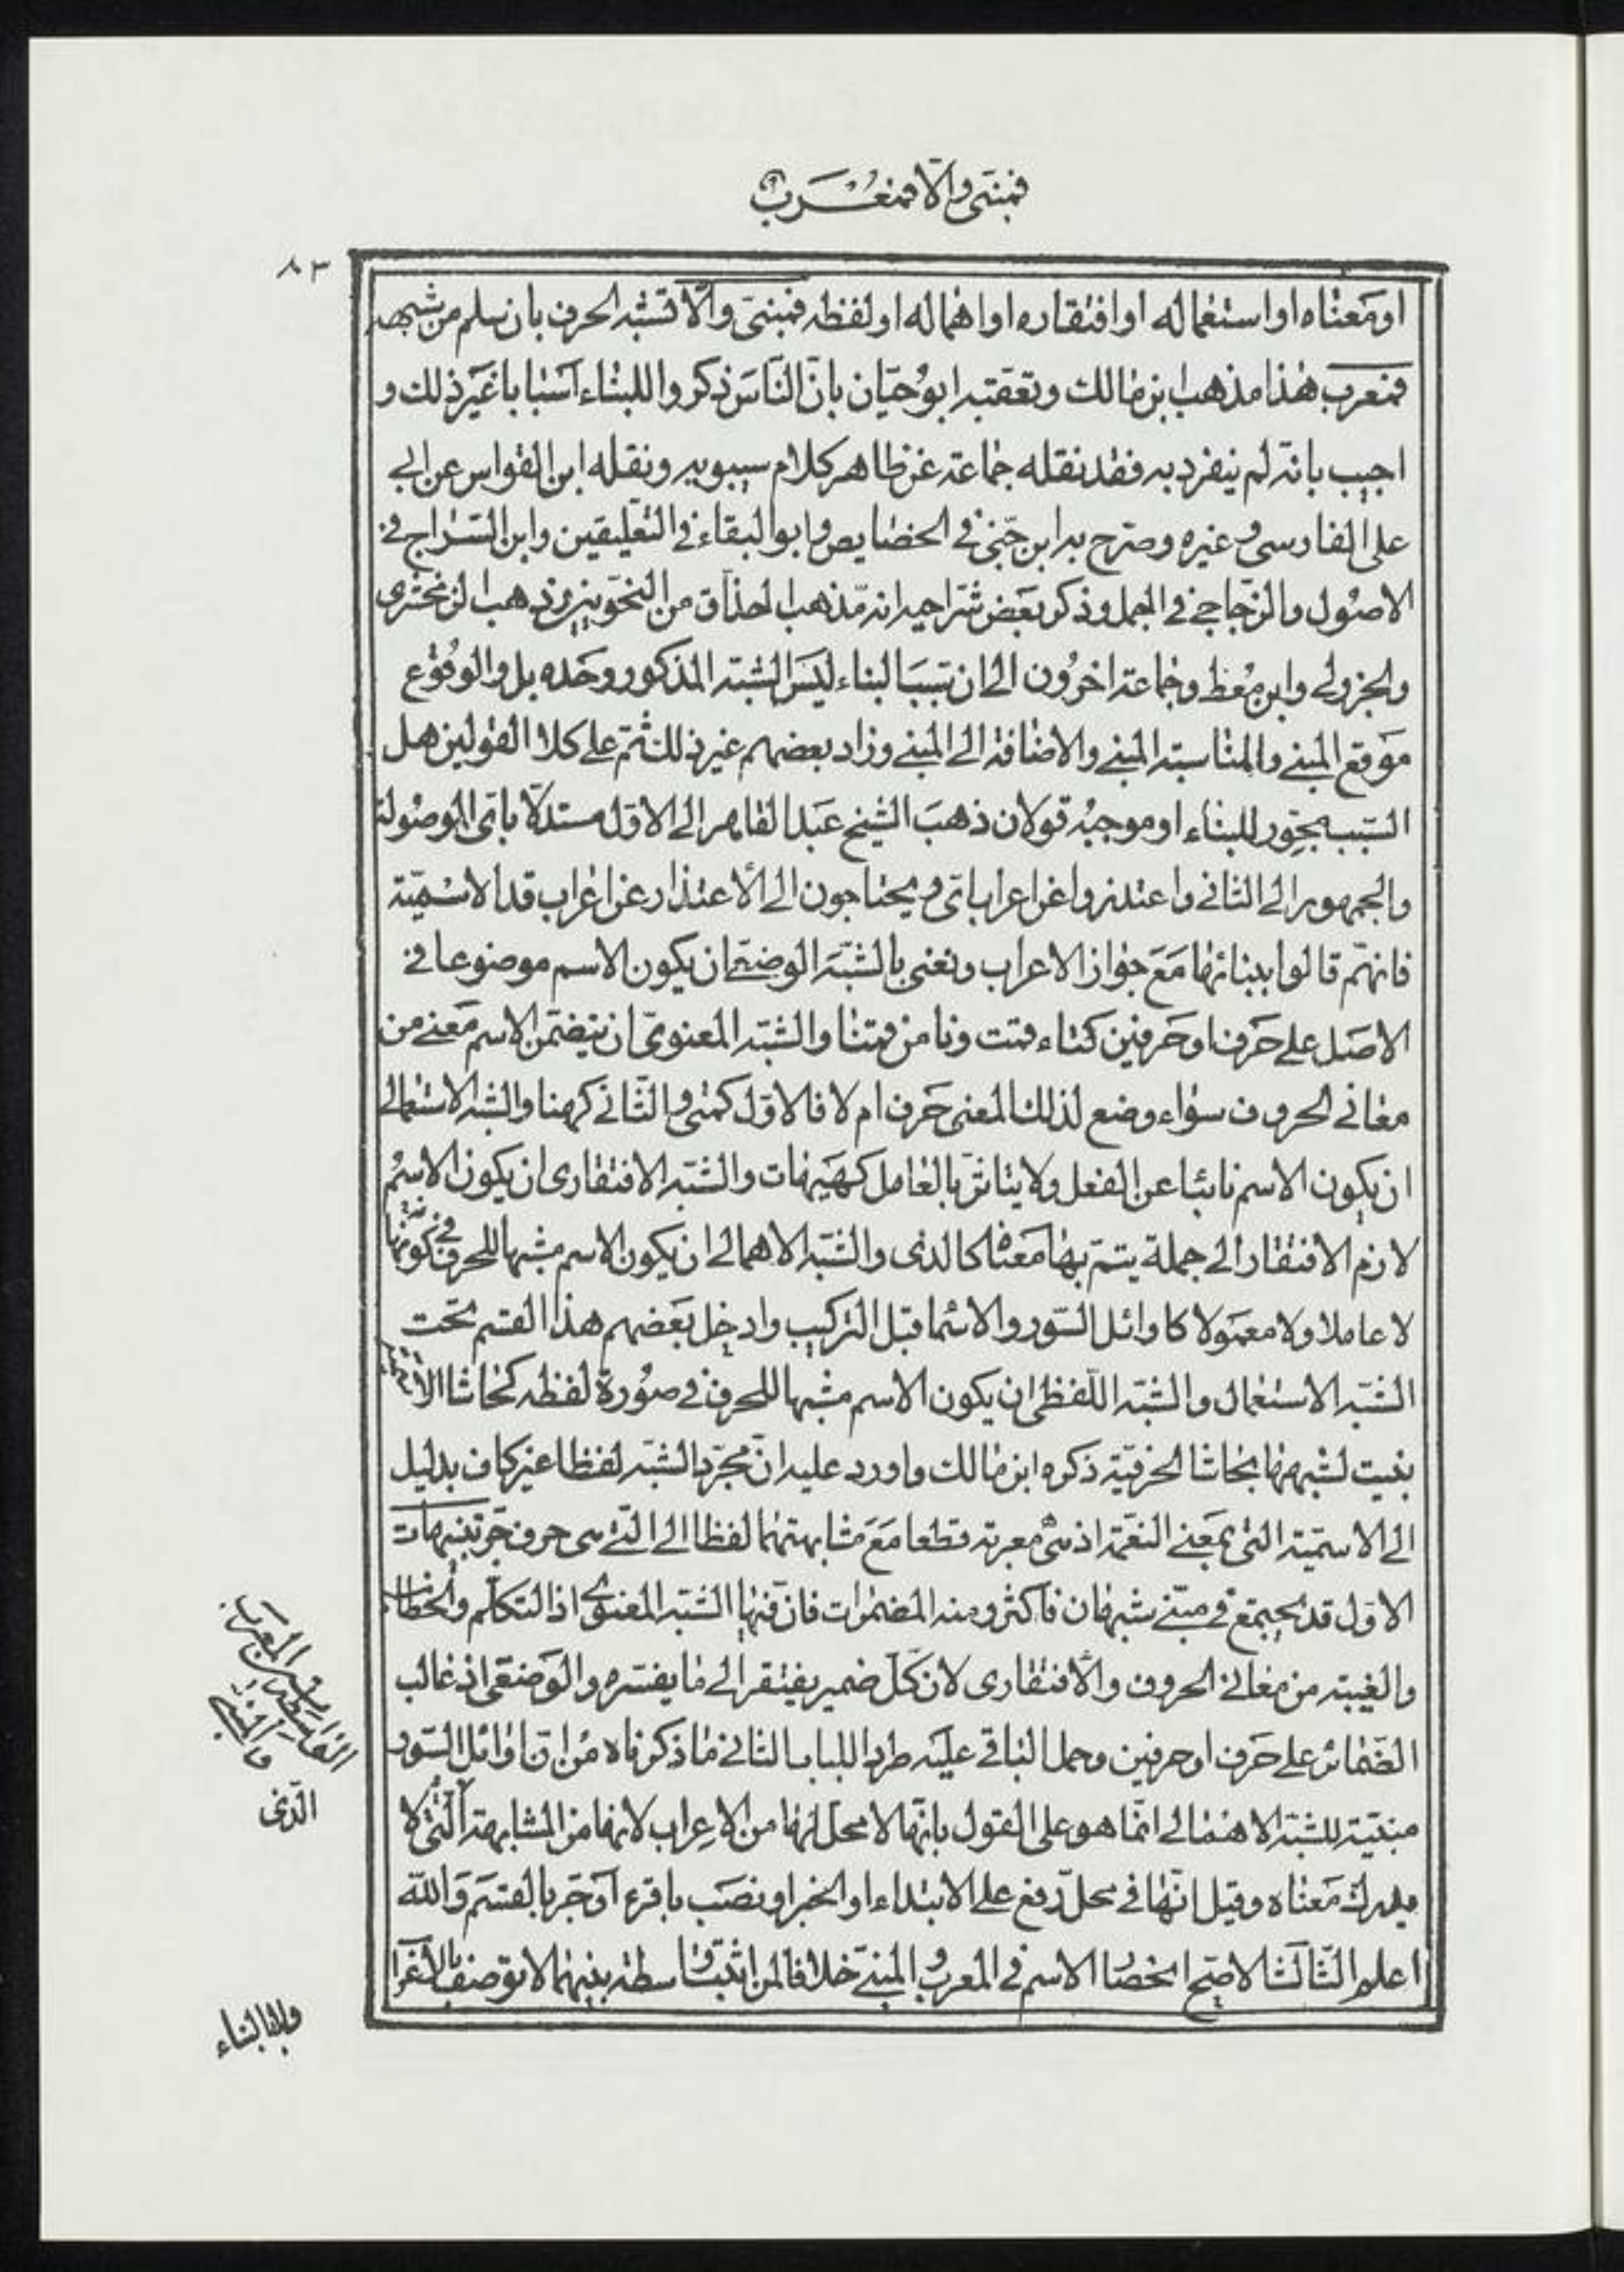 فمبنى والا فمعرب
٨٣
او معناه او استعماله او افتقاره او اهماله او لفظه فمبنىّ والّا تشبه الحرف بان سلم من شبهه
فمعرب هذا مذهب ابن مالك وتعقّبه ابو حيّان بانّ النّاس ذكروا للبناء اسبابا غير ذلك و
اجيب بانه لم ينفرد به فقد نقله جماعة عن ظاهر كلام سيبويه ونقله ابن القواس عن ابى
على الفارسى وغيره وصرّح به ابن جنّى فى الخصايص وابو البقاء فى التعليقين وابن السّراج فى
الاصول والزّجاجى فى الجمل وذكر بعض شراحه انه مذهب الحذّاق من النحويين وذهب الزمخشرى
والجزولى وابن معط وجماعة اخرون الى ان سبب البناء ليس الشبه المذكور وحده بل والوقوع
موقع المبنى والمناسبة المبنى والاضافة الى المبنى وزاد بعضهم غير ذلك ثم على كلا القولين هل
السّبب مجوّر للبناء او موجبه قولان ذهب الشيخ عبد القاهر الى الاول مستدلّا باىّ الموصولة
والجمهور الى الثانى واعتذروا عن اعراب اىّ ويحتاجون الى الاعتذار عن اعراب قد الاسميّة
فانهم قالوا ببنائها مع جواز الاعراب ونعنى بالشبه الوضعى ان يكون الاسم موضوعا فى
الاصل على حرف او حرفين كتاء قمت ونا من قمتنا والشبه المعنوىّ ان يتضمن الاسم معنى من
معانى الحروف سواء وضع لذلك المعنى حرف ام لا فالاوّل كمتى والثّانى كهنا والشبه الاستعمالى
ان يكون الاسم نائبا عن الفعل ولا يتاثر بالعامل كهيهات والشبه الافتقارى ان يكون الاسم
لازم الافتقار الى جملة يتمّ بها معناه كالذى والشبه الاهمالى ان يكون الاسم مشبها للحرف فى كونه
لا عاملا ولا معمولا كاوائل السّور والاسما قبل التركيب وادخل بعضهم هذا القسم تحت
الشبه الاستعمال والشبه اللّفظى ان يكون الاسم مشبها للحرف فى صورة لفظه كحاشا الاسميّة
بنيت لشبهها بحاشا الحرفيّة ذكره ابن مالك واورد عليه انّ مجرّد الشبه لفظا غير كاف بدليل
الى الاسميّة التى بمعنى النعمة اذ هى معربة قطعا مع مشابهتها لفظا الى التى هى حرف جرّ تنبيهات
الاوّل قد يجتمع فى مبنى شبهان فاكثر ومنه المضمرات فان فيها الشبه المعنوى اذ التكلّم والخطاب
والغيبة من معانى الحروف والافتقارى لان كلّ ضمير يفتقر الى ما يفسره والوضعى اذ غالب
الضّمائر على حرف او حرفين وحمل الباقى عليه طردا للباب الثانى ما ذكرناه من انّ اوائل السّور
مبنيّة للشبه الاهمالى انّما هو على القول بانّها لا محل لها من الاعراب لانها من المشابهة الّتى لا
يدرك معناه وقيل انّها فى محلّ رفع على الابتداء او الخبر او نصب باقرء او جر بالقسم والله
اعلم الثّالث الاصحّ انحصار الاسم فى المعرب والمبنىّ خلافا لمن اثبت واسطة بينهما لا توصف بالاعراب
المعرب
والمبنى
الّذى
ولا بالبناء